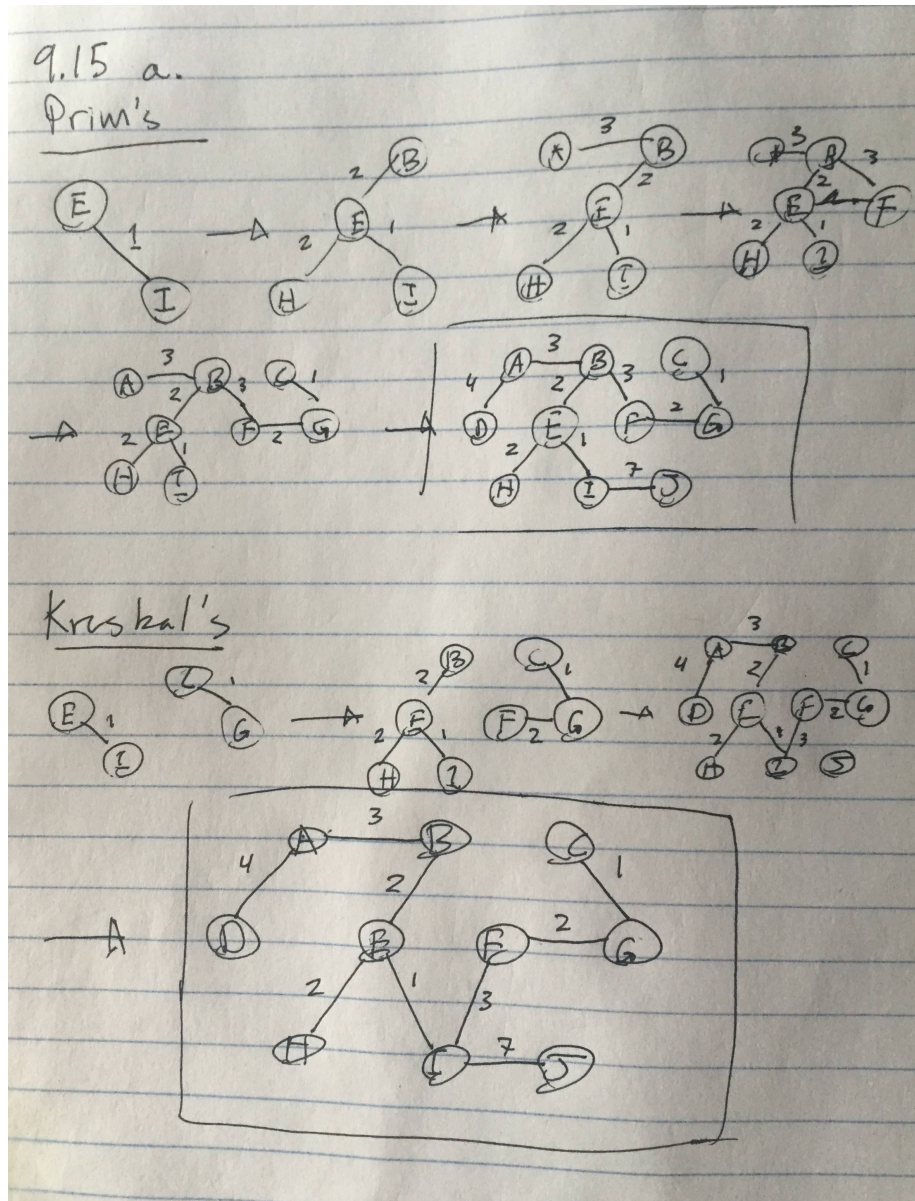 9.15 a.
Prim's
E
1
I
2 B
E
2 1
H I
A 3 B
2
E
2 1
H I
A 3 B
2 3
E F
2 1
H I
3
A B C
2 3 1
E F 2 G
2 1
H I
3
A B C
4 2 3 1
D E F 2 G
2 1
H I 7 J
Kruskal's
E 1
I
C 1
G
2 B
E
2 1
H I
C
1
F 2 G
3
A B C
4 2 1
D E F 2 G
2 1 3
H I J
3
A B C
4 2 1
D E F 2 G
2 1 3
H I 7 J